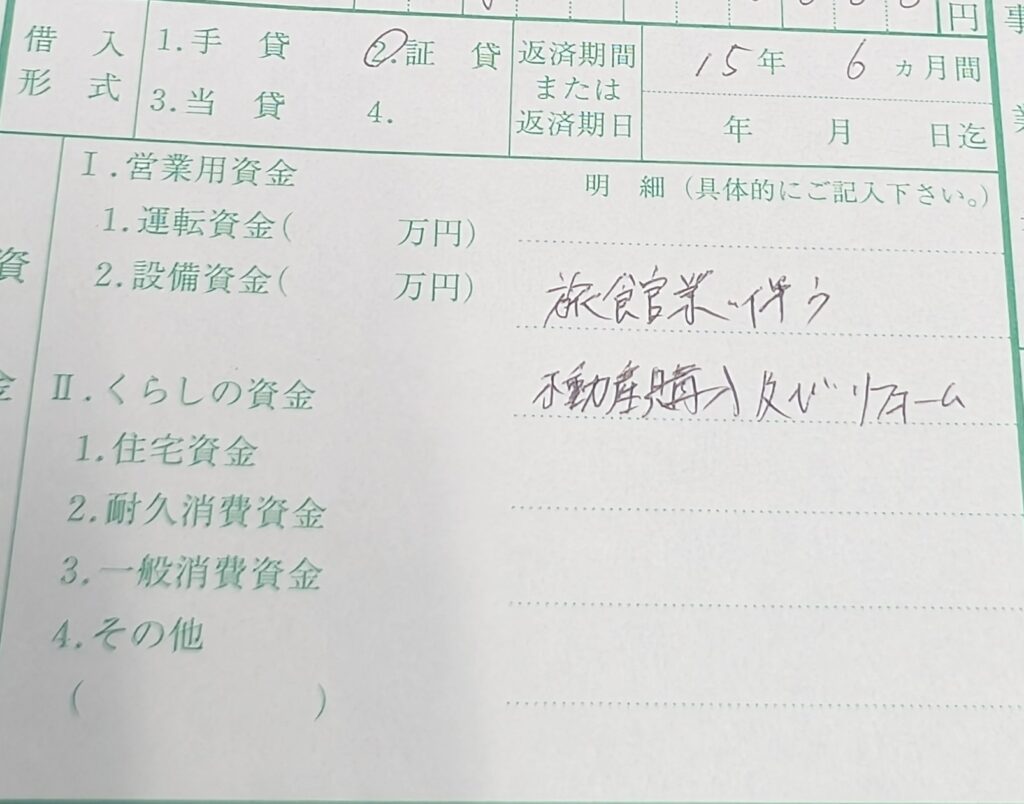 円
借入形式
1.手貸 2.証貸
3.当貸 4.
返済期間
または
返済期日
15年 6ヵ月間
年 月 日迄
I.営業用資金
明細(具体的にご記入下さい。)
1.運転資金( 万円)
2.設備資金( 万円)
旅館業に伴う
II.くらしの資金
不動産購入及びリフォーム
1.住宅資金
2.耐久消費資金
3.一般消費資金
4.その他
( )
資
金
事
業